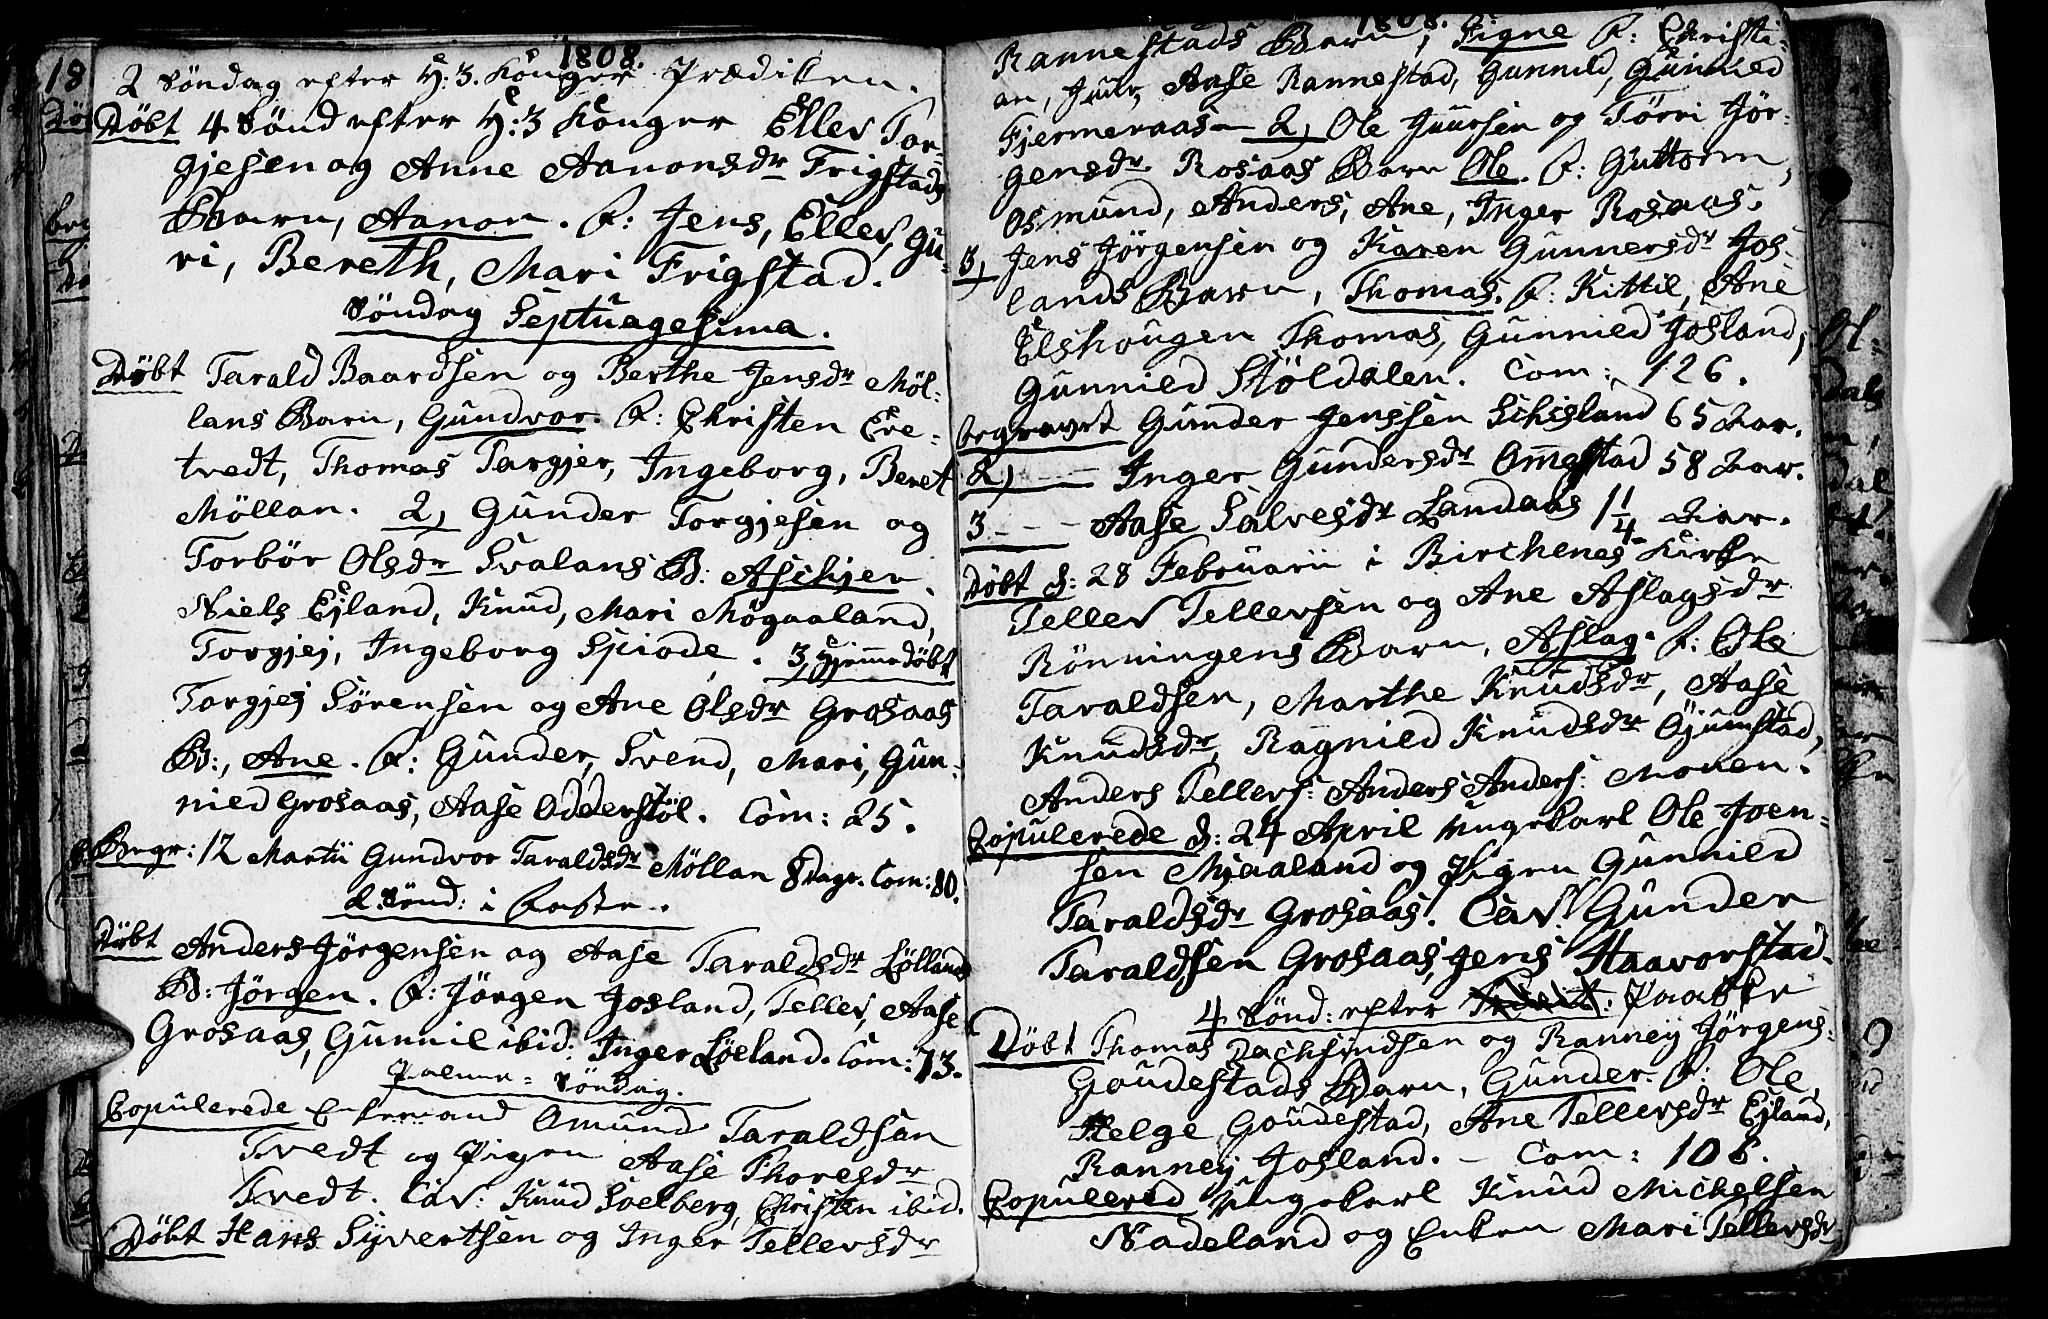 1808.
2 Søndag efter H: 3. Konger Prædiken.
Døbt 4 Sønd efter H: 3 Konger Ellev Tor-
gjesen og Anne Aanonsdr Frigstads
Barn, Aanon. F: Jens, Ellev, Gu-
ri, Bereth, Mari Frigstad.
Søndag Septuagesima.
Døbt Tarald Baardsen og Berthe Jensdr Møl-
lans Barn, Gundvor. F: Christen Ere-
tvedt, Thomas Targjer, Ingeborg, Beret
Møllan. 2, Gunder Torgjesen og
Torbör Olsdr Svalans B: Aschjer.
Niels Ejland, Knud, Mari Mögaaland,
Torgjej, Ingeborg Spiode. 3, Hjemedöbt
Torgjej Sörensen og Ane Olsdr Grosaas
B:, Ane. F: Gunder, Svend, Mari, Gun-
nied Grosaas, Aase Odderstöl. Com: 25.
Begr: 12 Martii Gundvor Taraldsdr Möllan 8 Dage. Com: 80.
2. Sönd: i Faste.
Döbt Anders Jörgensen og Aase Taraldsdr Löllands
B: Jörgen. F: Jörgen Josland, Tellev, Aase
Grosaas, Gunnil ibid: Inger Löeland. Com: 73.
Palme-Söndag.
Copulerede Enkemand Omund Taraldsen
Tvedt og Pigen Aase Thoresdr
Tvedt. Cav: Knud Soelberg, Christen ibid.
Döbt Hans Syvertsen og Inger Tellevsdr
1808.
Rannestads Barn, Signe F: Christi-
an, Juul, Aase Rannestad, Gunnild, Gunnied
Fjermeraas — 2, Ole Juursen og Törri Jör-
gensdr Rosaas Barn Ole. F: Guttorm,
Osmund, Anders, Ane, Inger Rosaas.
3, Jens Jörgensen og Karen Gunnersdr Jos-
lands Barn, Thomas. F: Kittil, Ane
Elshougen Thomas, Gunnied Josland,
Gunnied Stöldalen. Com: 126.
begravet Gunder Jenssen Schisland 65 Aar.
2, — Inger Gundersdr Omestad 58 Aar.
3 - - Aase Salvesdr Landaas 1 1/4 Aar.
Döbt d: 28 Februarii i Birchenes Kirke
Tellev Tellevsen og Ane Aslagsdr
Rönningens Barn, Aslag. F: Ole
Taraldsen, Marthe Knudsdr, Aase
Knudsdr, Ragnild Knudsdr Öjumstad,
Anders Tellevs: Anders Anders: Monen.
Copulerede d: 24 April Ungekarl Ole Joen-
sen Mjaaland og Pigen Gunnild
Taraldsdr Grosaas. Cav: Gunder
Taraldsen Grosaas, Jens Haavorstad.
4 Sönd: efter Paaske
Döbt Thomas Dachsindsen og Ranney Jörgens-
Goudestads Barn, Gunder. F: Ole,
Helge Goudestad, Ane Tellevsdr Ejland,
Ranney Josland. — Com: 106.
Copulered Ungekarl Knud Michelsen
Nadeland og Enken Mari Tellevsdr